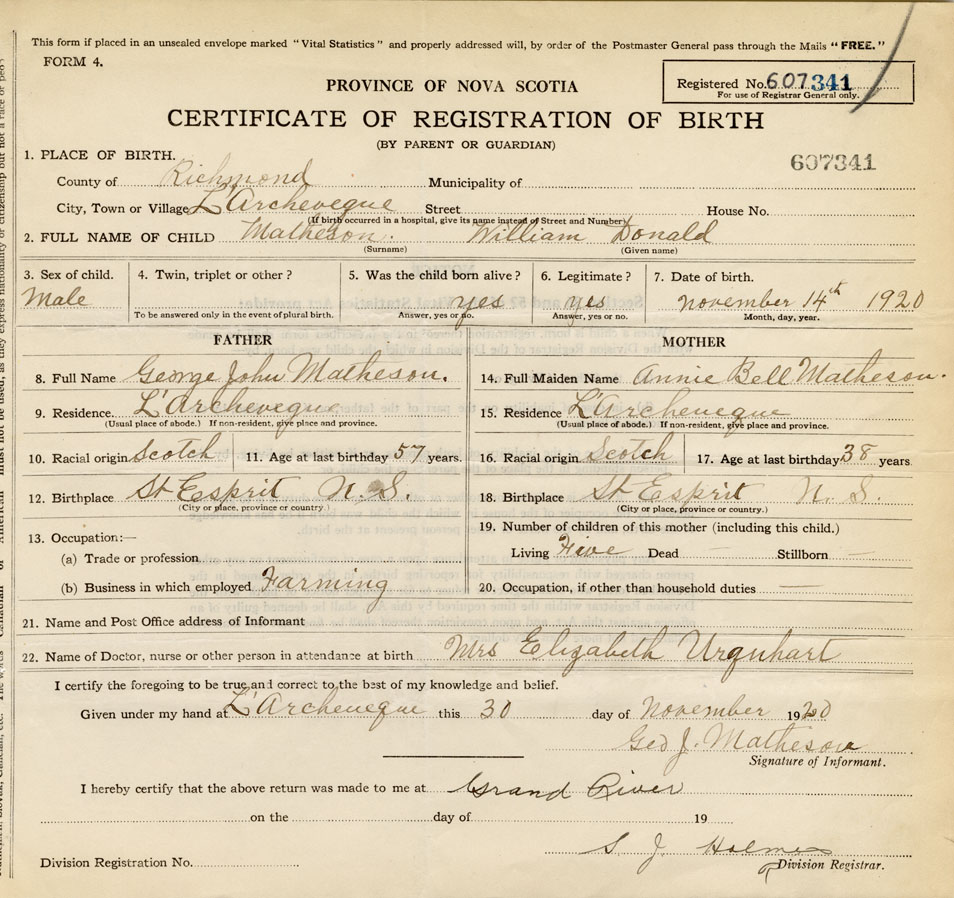 This form if placed in an unsealed envelope marked "Vital Statistics" and properly addressed will, by order of the Postmaster General pass through the Mails "FREE."
FORM 4.
Registered No. 607341
For use of Registrar General only.
PROVINCE OF NOVA SCOTIA
CERTIFICATE OF REGISTRATION OF BIRTH
(BY PARENT OR GUARDIAN)
607341
1. PLACE OF BIRTH.
County of Richmond Municipality of
City, Town or Village L'Archeveque Street House No.
(If birth occurred in a hospital, give its name instead of Street and Number)
2. FULL NAME OF CHILD Matheson. William Donald
(Surname) (Given name)
3. Sex of child. 4. Twin, triplet or other? 5. Was the child born alive? 6. Legitimate? 7. Date of birth.
Male yes yes November 14th 1920
To be answered only in the event of plural birth. Answer, yes or no. Answer, yes or no. Month, day, year.
FATHER MOTHER
8. Full Name George John Matheson. 14. Full Maiden Name Annie Bell Matheson.
9. Residence. L'Archeveque 15. Residence L'Archeveque
(Usual place of abode.) If non-resident, give place and province. (Usual place of abode.) If non-resident, give place and province.
10. Racial origin Scotch 11. Age at last birthday 57 years. 16. Racial origin Scotch 17. Age at last birthday 38 years.
12. Birthplace St Esprit N. S. 18. Birthplace St Esprit N. S.
(City or place, province or country.) (City or place, province or country.)
13. Occupation:— 19. Number of children of this mother (including this child.)
(a) Trade or profession Living Five Dead — Stillborn —
(b) Business in which employed Farming 20. Occupation, if other than household duties
21. Name and Post Office address of Informant
22. Name of Doctor, nurse or other person in attendance at birth Mrs Elizabeth Urquhart
I certify the foregoing to be true and correct to the best of my knowledge and belief.
Given under my hand at L'Archeveque this 30 day of November 1920
Geo J. Matheson
Signature of Informant.
I hereby certify that the above return was made to me at Grand River
on the day of 19
S. J. Holmes
Division Registration No. Division Registrar.